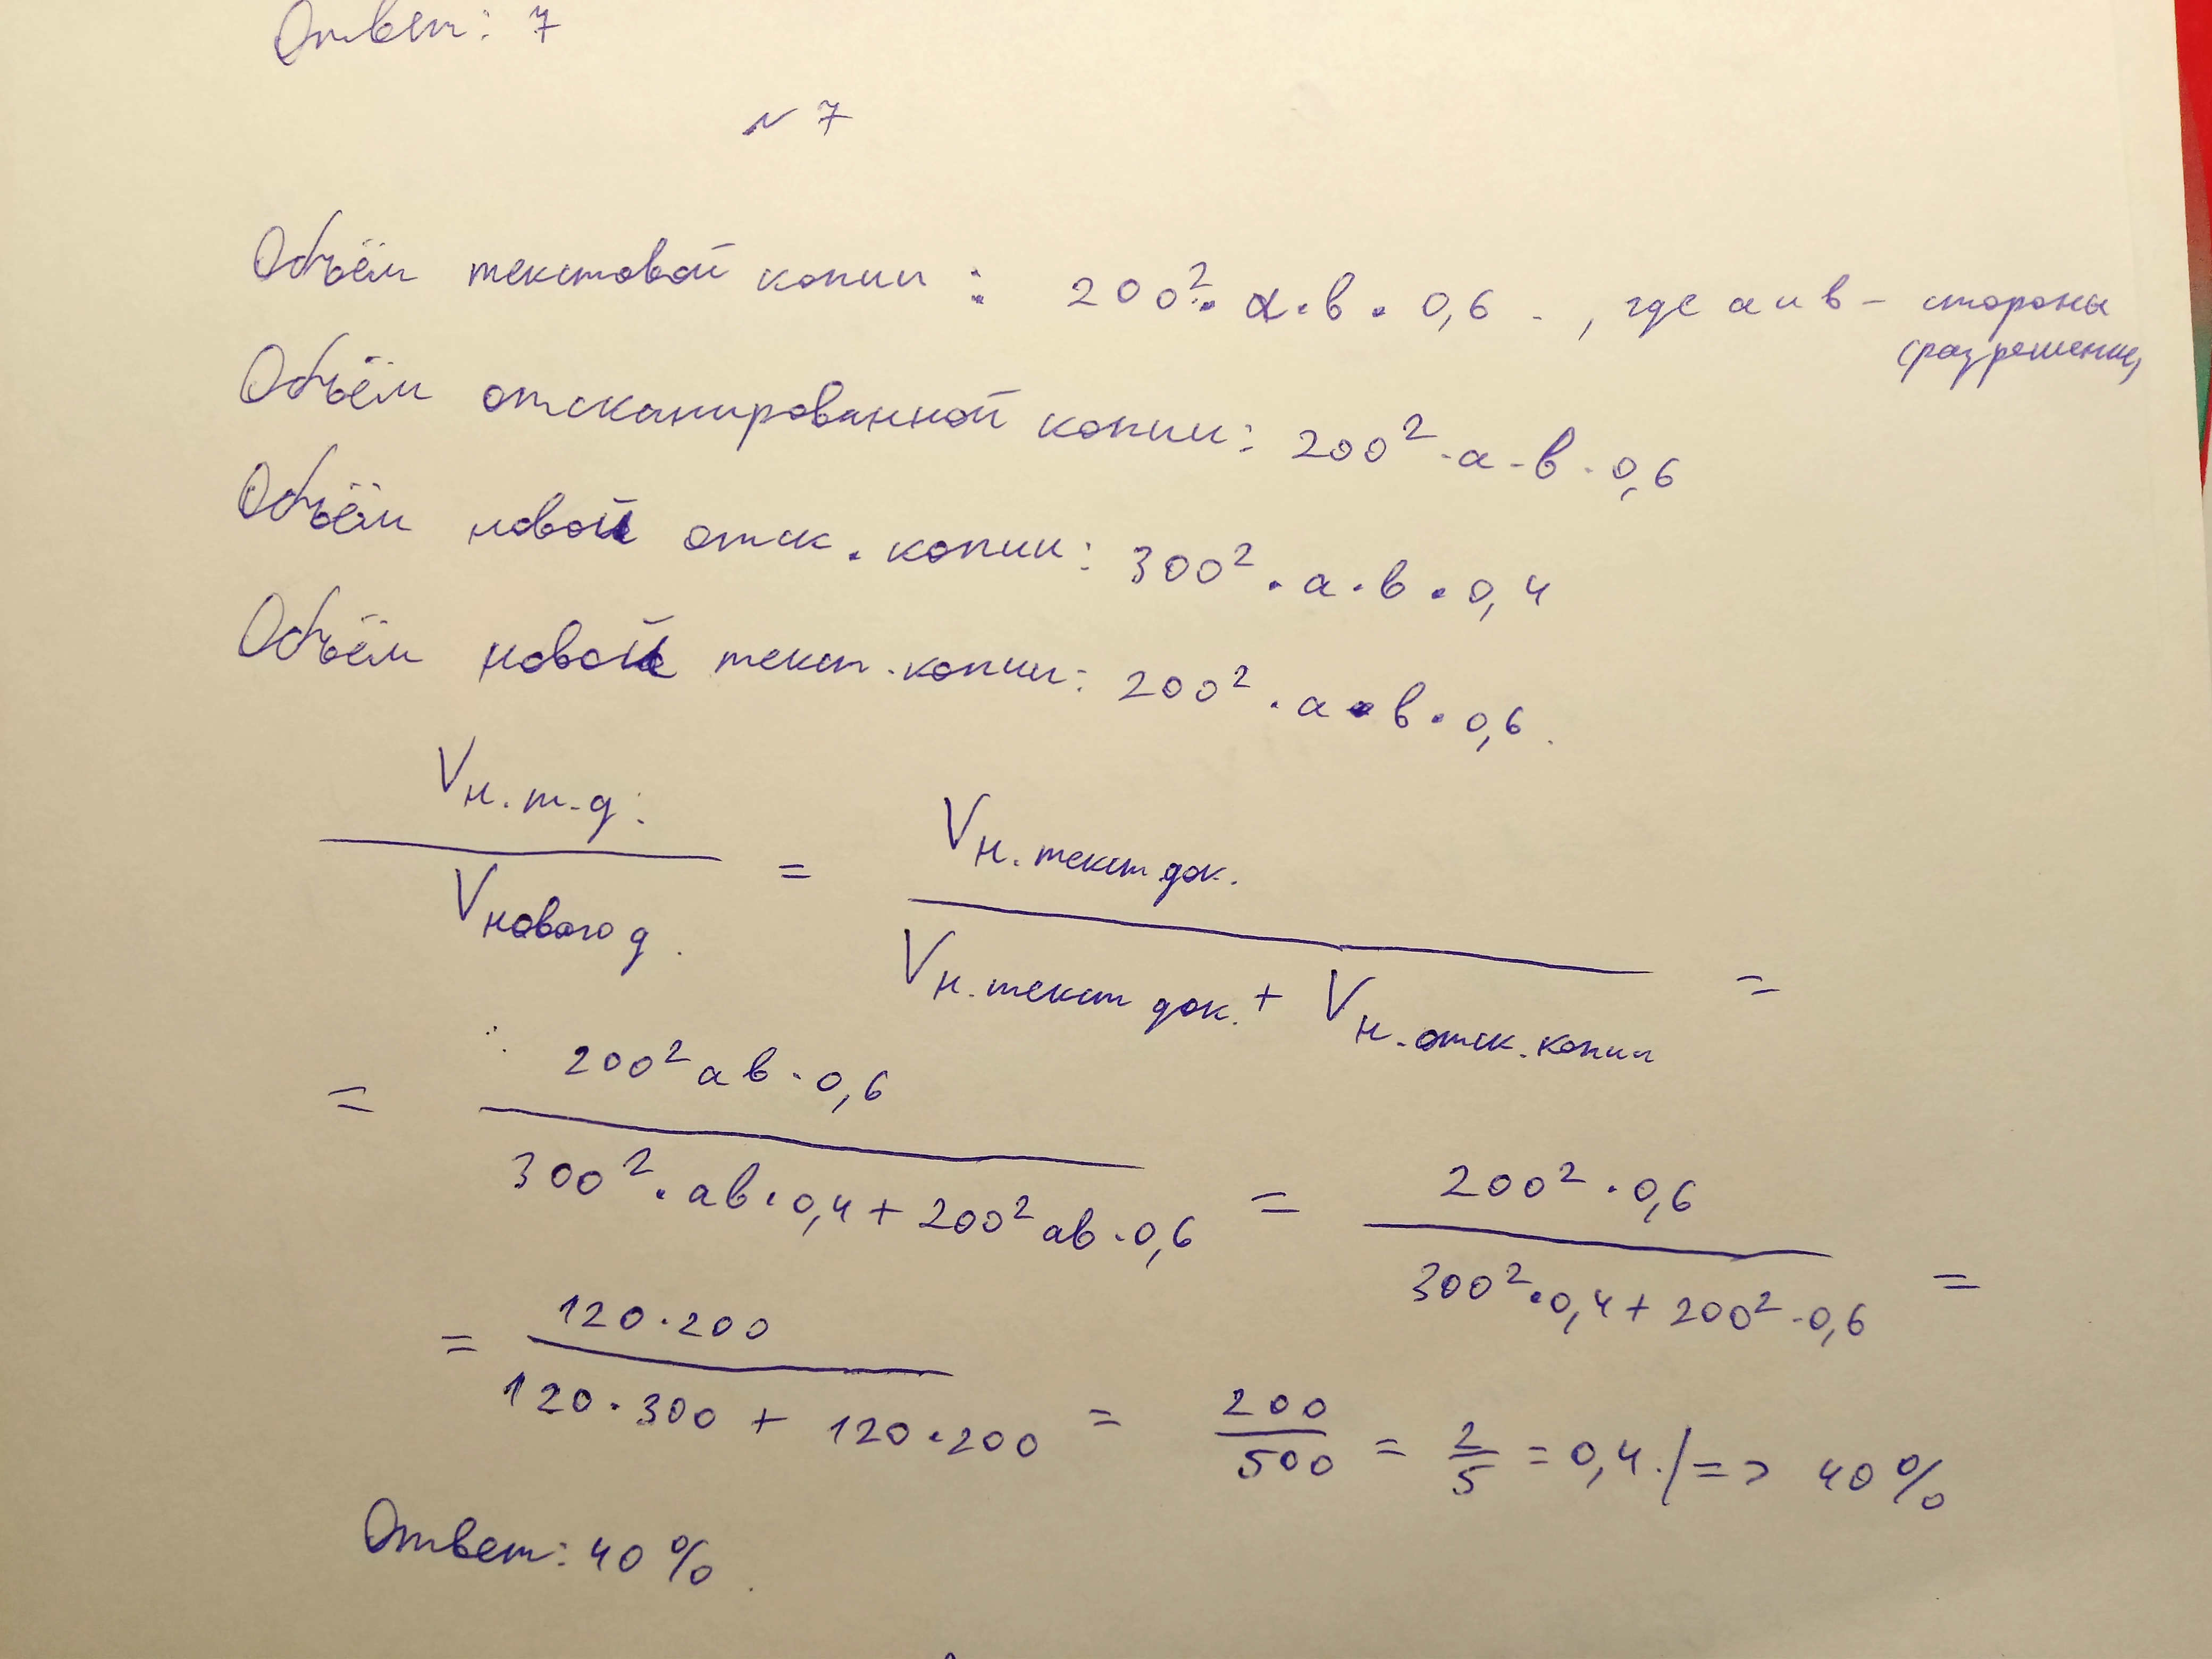 Ответ: 7
№ 7
Объём текстовой копии: 200² · a · в · 0,6 , где a и в – стороны
(разрешение)
Объём отсканированной копии: 200² · a · в · 0,6
Объём новой отск. копии: 300² · a · в · 0,4
Объём новой текст. копии: 200² · a · в · 0,6.
Vн.т.д. / Vнового д. = Vн. текст док. / (Vн. текст док. + Vн. отск. копии) =
= 200² a в · 0,6 / (300² · aв · 0,4 + 200² aв · 0,6) = 200² · 0,6 / (300² · 0,4 + 200² · 0,6) =
= 120 · 200 / (120 · 300 + 120 · 200) = 200/500 = 2/5 = 0,4. / => 40%
Ответ: 40%.